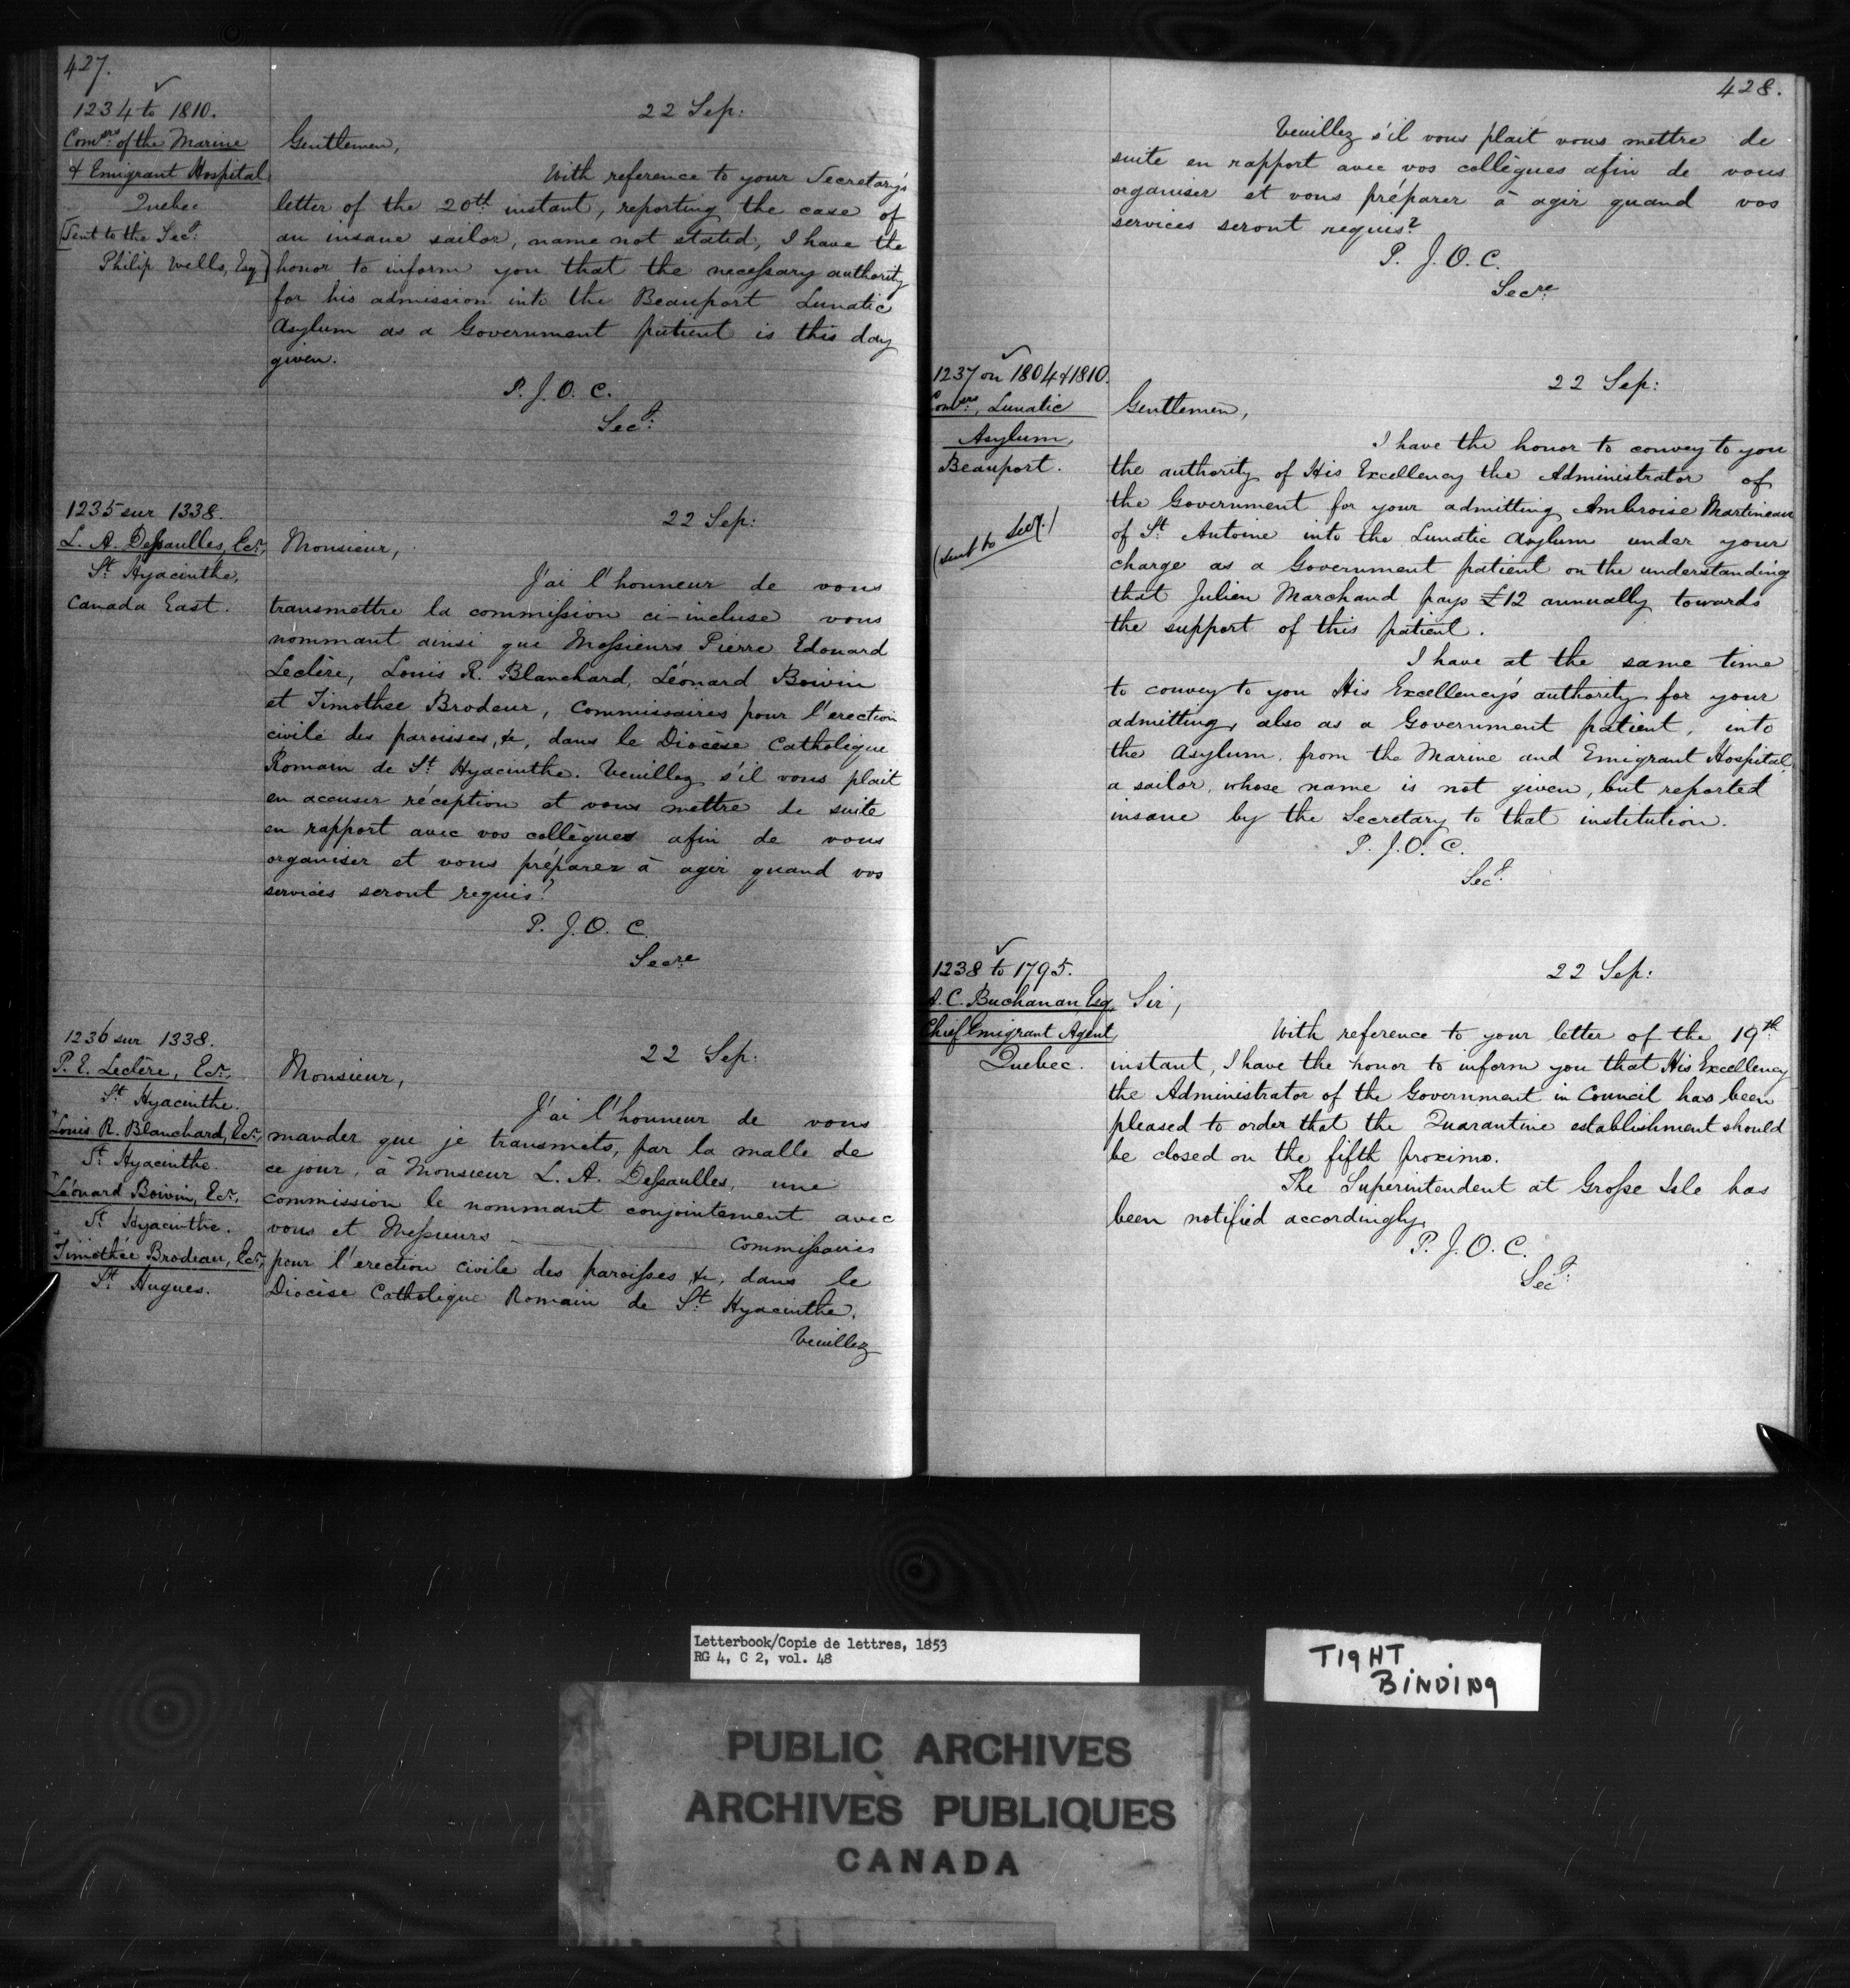 427.
1234 to 1810.
Comers. of the Marine
& Emigrant Hospital,
Quebec
[Sent to the Secy:
Philip Wells, Esq]
22 Sep:
Gentlemen,
With reference to your Secretary's
letter of the 20th instant, reporting the case of
an insane sailor, name not stated, I have the
honor to inform you that the necessary authority
for his admission into the Beauport Lunatic
Asylum as a Government patient is this day
given.
P. J. O. C.
Secy:
1235 sur 1338.
L. A. Dessaulles, Ecr,
St Hyacinthe,
Canada East.
22 Sep:
Monsieur,
J'ai l'honneur de vous
transmettre la commission ci-incluse vous
nommant ainsi que Messieurs Pierre Edouard
Leclère, Louis R. Blanchard, Léonard Boivin
et Timothée Brodeur, Commissaires pour l'erection
civile des paroisses, &c, dans le Diocèse Catholique
Romain de St Hyacinthe. Veuillez s'il vous plait
en accuser réception et vous mettre de suite
en rapport avec vos collègues afin de vous
organiser et vous préparer à agir quand vos
services seront requis?
P. J. O. C.
Secre
1236 sur 1338.
P. E. Leclère, Ecr,
St Hyacinthe.
Louis R. Blanchard, Ecr,
St Hyacinthe.
Léonard Boivin, Ecr,
St Hyacinthe.
Timothée Brodeau, Ecr,
St Hugues.
22 Sep:
Monsieur,
J'ai l'honneur de vous
mander que je transmets, par la malle de
ce jour, à Monsieur L. A. Dessaulles, une
commission le nommant conjointement avec
vous et Messieurs ———— Commissaires
pour l'erection civile des paroisses, &c, dans le
Diocèse Catholique Romain de St Hyacinthe.
Veuillez
428.
Veuillez s'il vous plait vous mettre de
suite en rapport avec vos collègues afin de vous
organiser et vous préparer à agir quand vos
services seront requis?
P. J. O. C.
Secre
1237 on 1804 & 1810.
Comers, Lunatic
Asylum,
Beauport.
(Sent to Secy.)
22 Sep:
Gentlemen,
I have the honor to convey to you
the authority of His Excellency the Administrator of
the Government for your admitting Ambroise Martineau
of St Antoine into the Lunatic Asylum under your
charge as a Government patient on the understanding
that Julien Marchand pays £12 annually towards
the support of this patient.
I have at the same time
to convey to you His Excellency's authority for your
admitting, also as a Government patient, into
the Asylum, from the Marine and Emigrant Hospital,
a sailor, whose name is not given, but reported
insane by the Secretary to that institution.
P. J. O. C.
Secy:
1238 to 1795.
A. C. Buchanan, Esq,
Chief Emigrant Agent,
Quebec.
22 Sep:
Sir,
With reference to your letter of the 19th
instant, I have the honor to inform you that His Excellency
the Administrator of the Government in Council has been
pleased to order that the Quarantine establishment should
be closed on the fifth proximo.
The Superintendent at Grosse Isle has
been notified accordingly.
P. J. O. C.
Secy:
Letterbook/Copie de lettres, 1853
RG 4, C 2, vol. 48
TIGHT
BINDING
PUBLIC ARCHIVES
ARCHIVES PUBLIQUES
CANADA